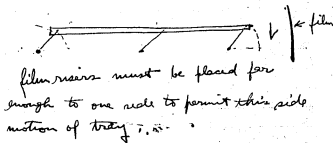 film
film risers must be placed far
enough to one side to permit this side
motion of tray